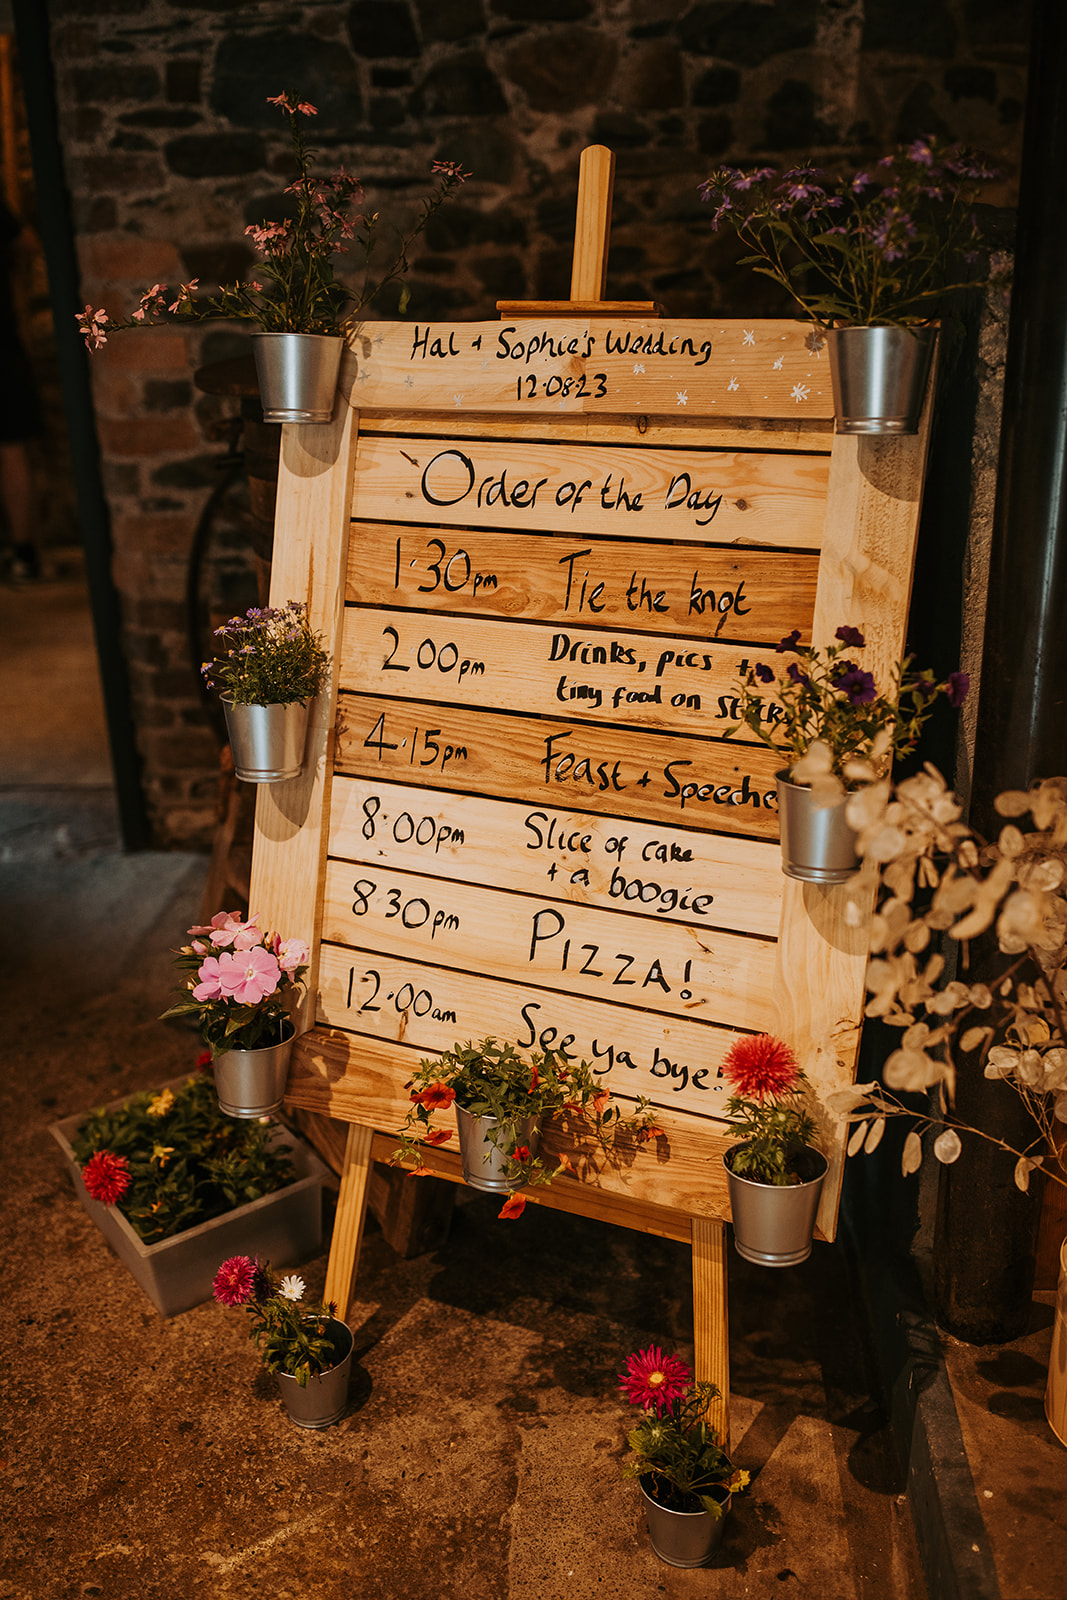 Hal + Sophie's Wedding
12·08·23
Order of the Day
1·30pm Tie the knot
2·00pm Drinks, pics +
tiny food on sticks
4·15pm Feast + Speeche
8·00pm Slice of cake
+ a boogie
8·30pm Pizza!
12·00am See ya bye!